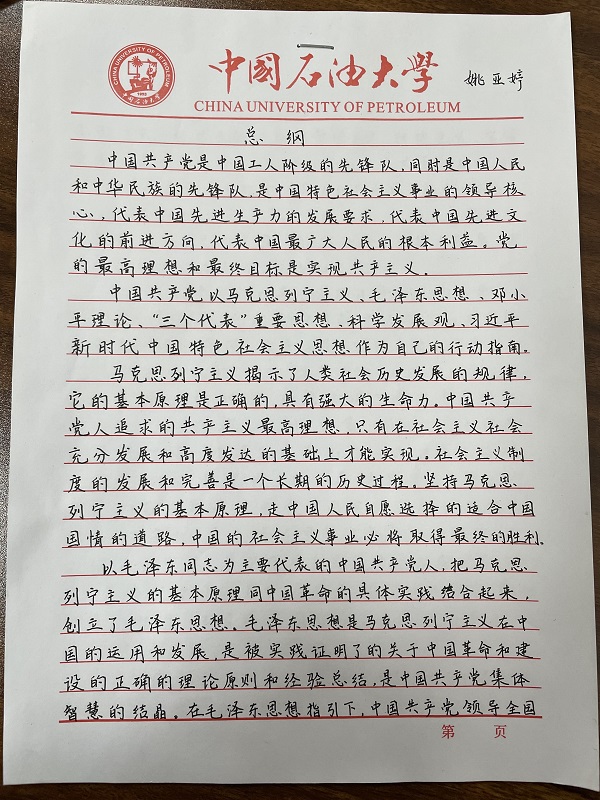 CHINA UNIVERSITY OF PETROLEUM
1953
中国石油大学
中國石油大學
姚亚婷
CHINA UNIVERSITY OF PETROLEUM
总纲
中国共产党是中国工人阶级的先锋队,同时是中国人民
和中华民族的先锋队,是中国特色社会主义事业的领导核
心,代表中国先进生产力的发展要求,代表中国先进文
化的前进方向,代表中国最广大人民的根本利益。党
的最高理想和最终目标是实现共产主义.
中国共产党以马克思列宁主义、毛泽东思想、邓小
平理论、“三个代表”重要思想、科学发展观、习近平
新时代中国特色社会主义思想作为自己的行动指南。
马克思列宁主义揭示了人类社会历史发展的规律,
它的基本原理是正确的,具有强大的生命力。中国共产
党人追求的共产主义最高理想,只有在社会主义社会
充分发展和高度发达的基础上才能实现。社会主义制
度的发展和完善是一个长期的历史过程。坚持马克思
列宁主义的基本原理,走中国人民自愿选择的适合中国
国情的道路,中国的社会主义事业必将取得最终的胜利.
以毛泽东同志为主要代表的中国共产党人,把马克思
列宁主义的基本原理同中国革命的具体实践结合起来,
创立了毛泽东思想。毛泽东思想是马克思列宁主义在中
国的运用和发展,是被实践证明了的关于中国革命和建
设的正确的理论原则和经验总结,是中国共产党集体
智慧的结晶。在毛泽东思想指引下,中国共产党领导全国
第 页